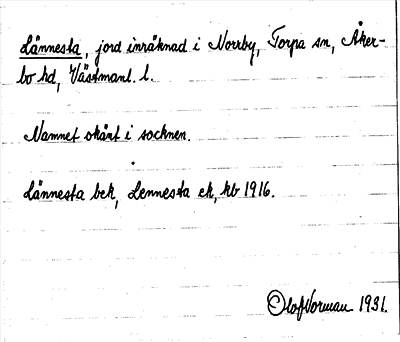 Lännesta, jord inräknad i Norrby, Torpa sn, Åker-
bo hd, Västmanl. l.
Namnet okänt i socknen.
Lännesta bek, Lennesta ek, kb 1916.
Olof Norman 1931.